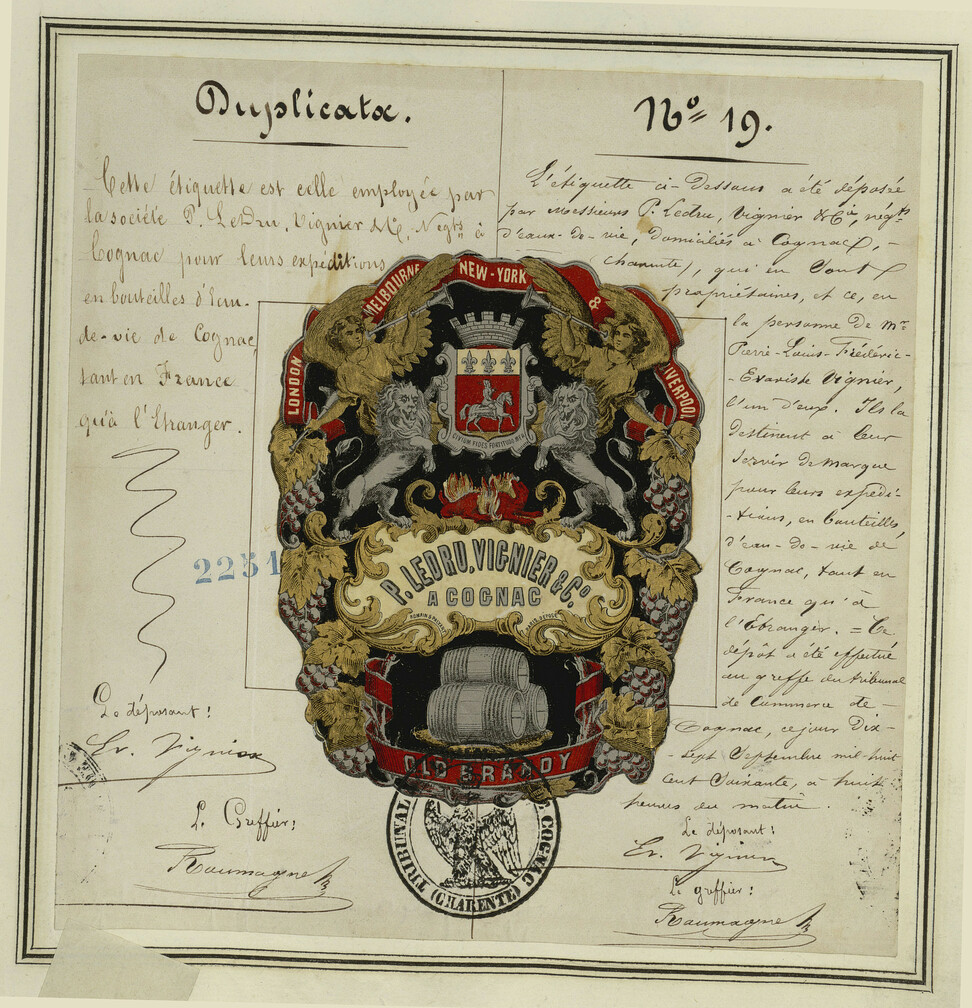 Duplicata.
Cette étiquette est celle employée par
la société P. LeDru, Vignier & Cie, Négts à
Cognac pour leurs expéditions
en bouteilles d'Eau-
de-vie de Cognac,
tant en France
qu'à l'Etranger.
2251
Le déposant:
Ev. Vignier
Le Greffier:
Roumagne
No 19.
L'étiquette ci-Dessous a été déposée
par Messieurs P. Ledru, Vignier & Cie, négts
d'eaux-de-vie, domiciliés à Cognac,
(Charente), qui en sont
propriétaires, et ce, en
la personne de Mr
Pierre-Louis-Frédéric-
-Evariste Vignier,
l'un d'eux. Ils la
destinent à leur
servir de marque
pour leurs expédi-
-tions, en bouteilles,
d'eau-de-vie de
Cognac, tant en
France qu'à
l'Etranger. = Ce
dépôt a été effectué
au greffe du tribunal
de Commerce de
Cognac, ce jour Dix-
-sept Septembre mil-huit
cent soixante, à huit
heures du matin.
Le déposant:
Ev. Vignier
Le greffier:
Roumagne
LONDON MELBOURNE NEW-YORK & LIVERPOOL
CIVIUM FIDES FORTITUDO MEA
P. LEDRU, VIGNIER & Co.
A COGNAC
OLD BRANDY
TRIBUNAL COGNAC
(CHARENTE)